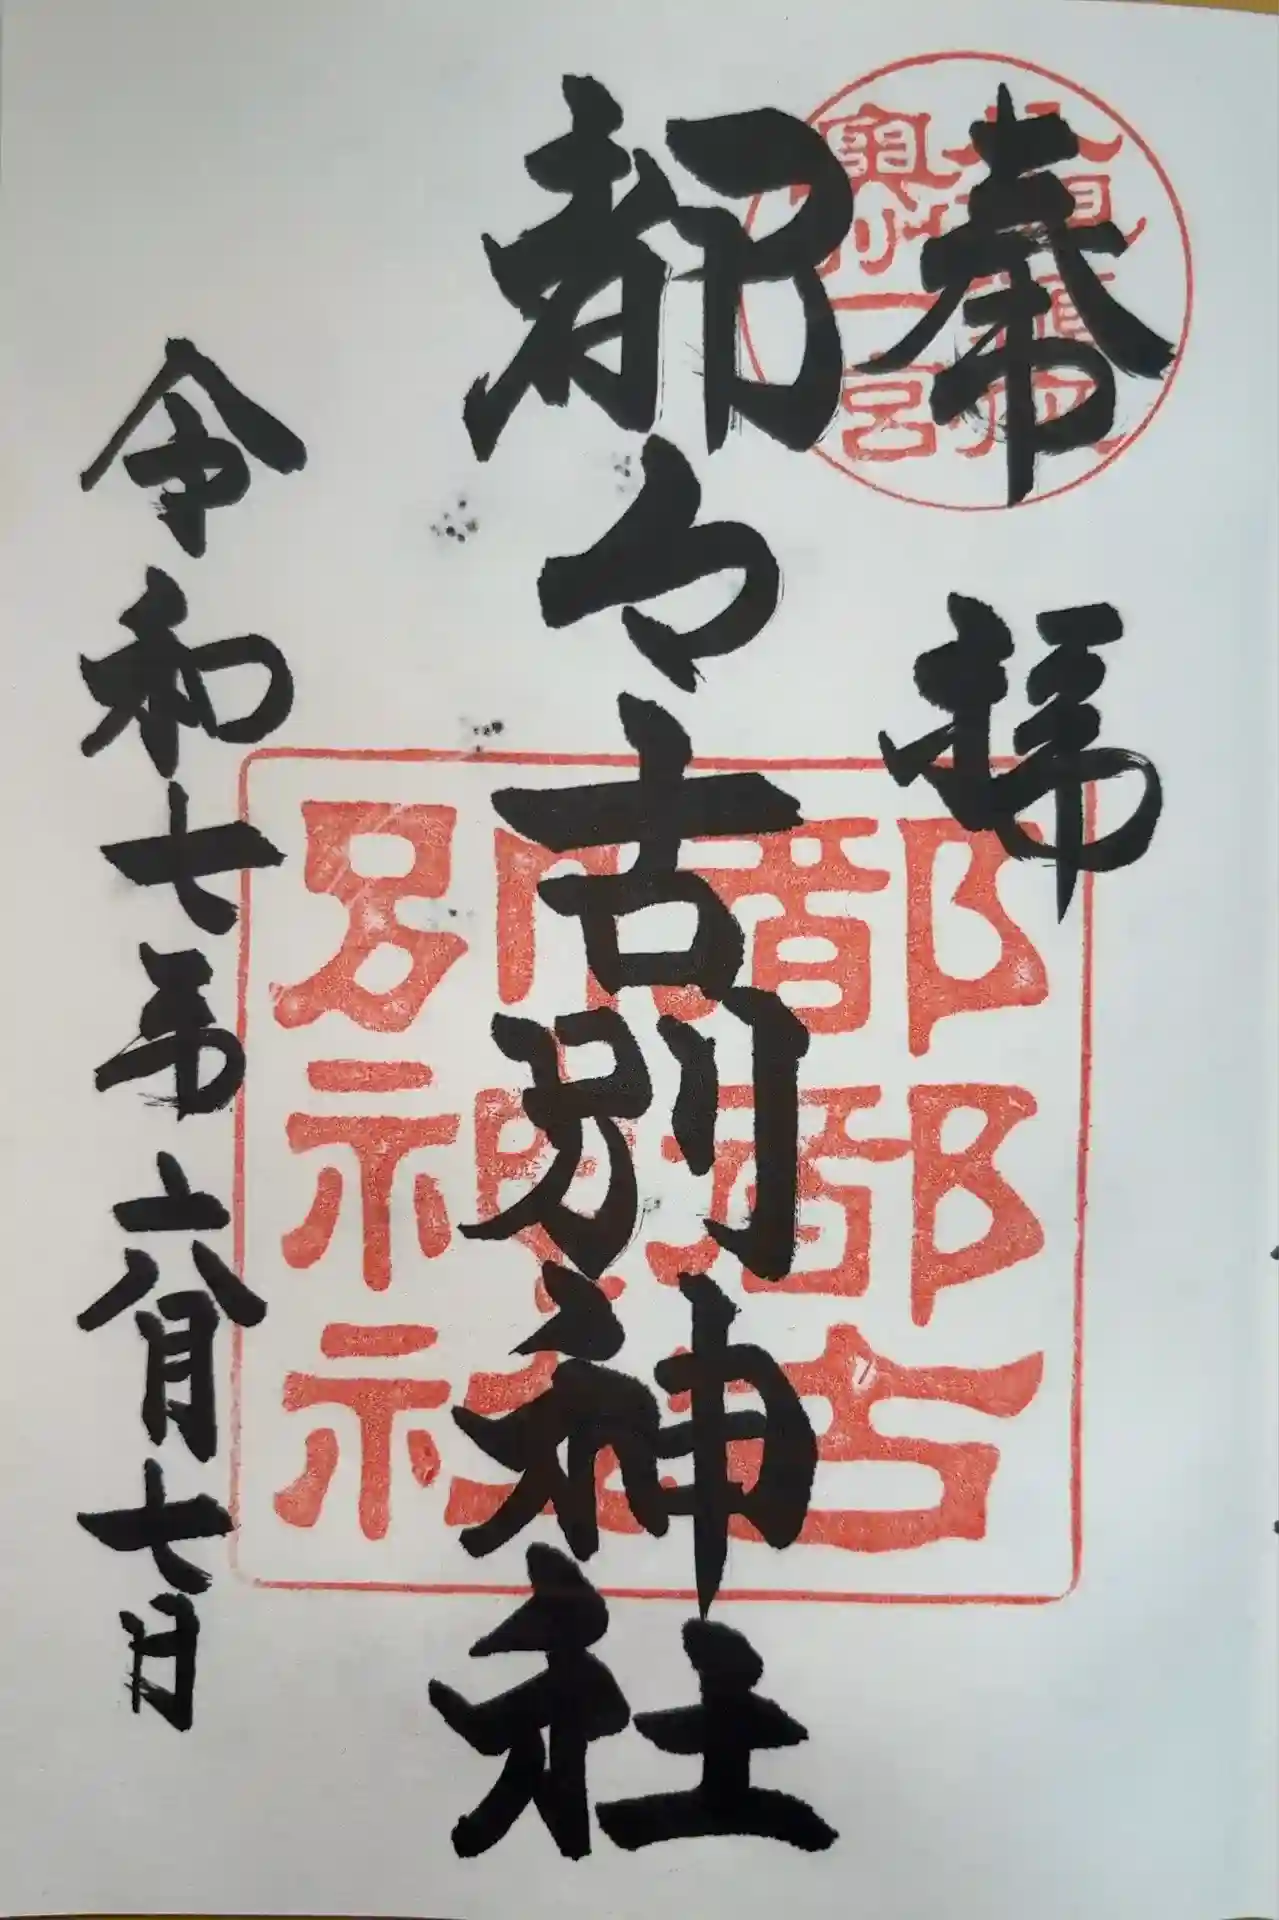 奉拝
都々古別神社
令和七年六月七日
奥州一宮
都都古
別神社